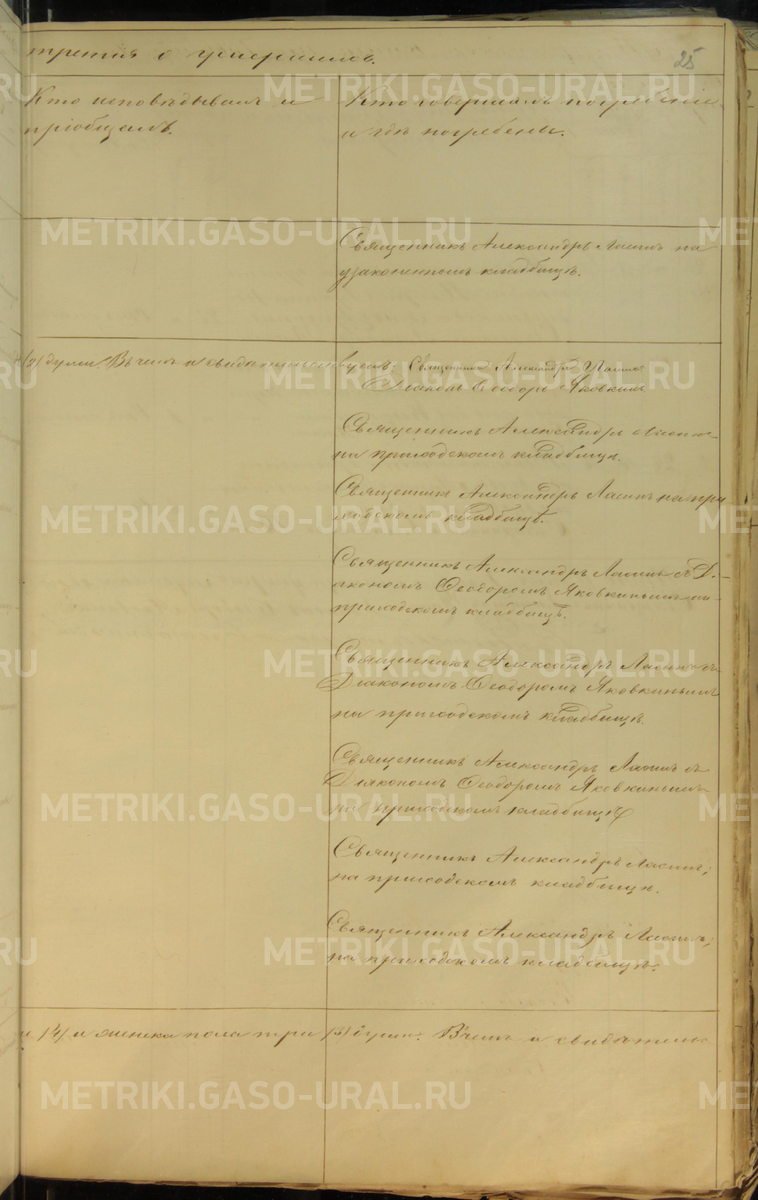 третия о умершихъ.
25
Кто исповѣдывалъ и
пріобщалъ.
Кто совершалъ погребеніе
и гдѣ погребены.
Священникъ Александръ на
узаконенномъ кладбищѣ.
(2) души. Въ чемъ и свидѣтельствуемъ: Священникъ Александръ
Діаконъ Ѳеодоръ Яковкинъ
Священникъ Александръ
на приходскомъ кладбищѣ.
Священникъ Александръ на при
ходскомъ кладбищѣ.
Священникъ Александръ съ Ді-
акономъ Ѳеодоромъ Яковкинымъ на
приходскомъ кладбищѣ.
Священникъ Александръ съ
Діакономъ Ѳеодоромъ Яковкинымъ
на приходскомъ кладбищѣ.
Священникъ Александръ съ
Діакономъ Ѳеодоромъ Яковкинымъ
на приходскомъ кладбищѣ
Священникъ Александръ
на приходскомъ кладбищѣ.
Священникъ Александръ
на приходскомъ кладбищѣ.
и женска пола три (3) души. Въ чемъ и свидѣтель
METRIKI.GASO-URAL.RU